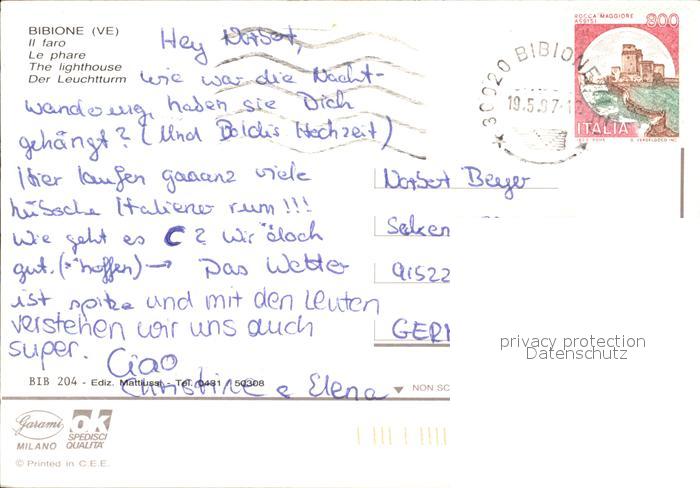 BIBIONE (VE)
Il faro
Le phare
The lighthouse
Der Leuchtturm
Hey Norbert,
wie war die Nacht-
wanderung, haben sie Dich
gehängt? (Und Boldis Hochzeit)
Hier laufen gaaanz viele
hübsche Italiener rum!!!
Wie geht es C? Wir doch
gut. (hoffen) → Das Wetter
ist spitze und mit den Leuten
verstehen wir uns auch
super.
Ciao
Christine e Elena
Norbert Beyer
91522
GER
ROCCA MAGGIORE
ASSISI
800
ITALIA
30020 BIBIONE
19.5.97
privacy protection
Datenschutz
BIB 204 - Ediz. Mattiussi - Tel. 0431 / 50308
NON SC
Garami
MILANO
OK
SPEDISCI
QUALITÀ
© Printed in C.E.E.